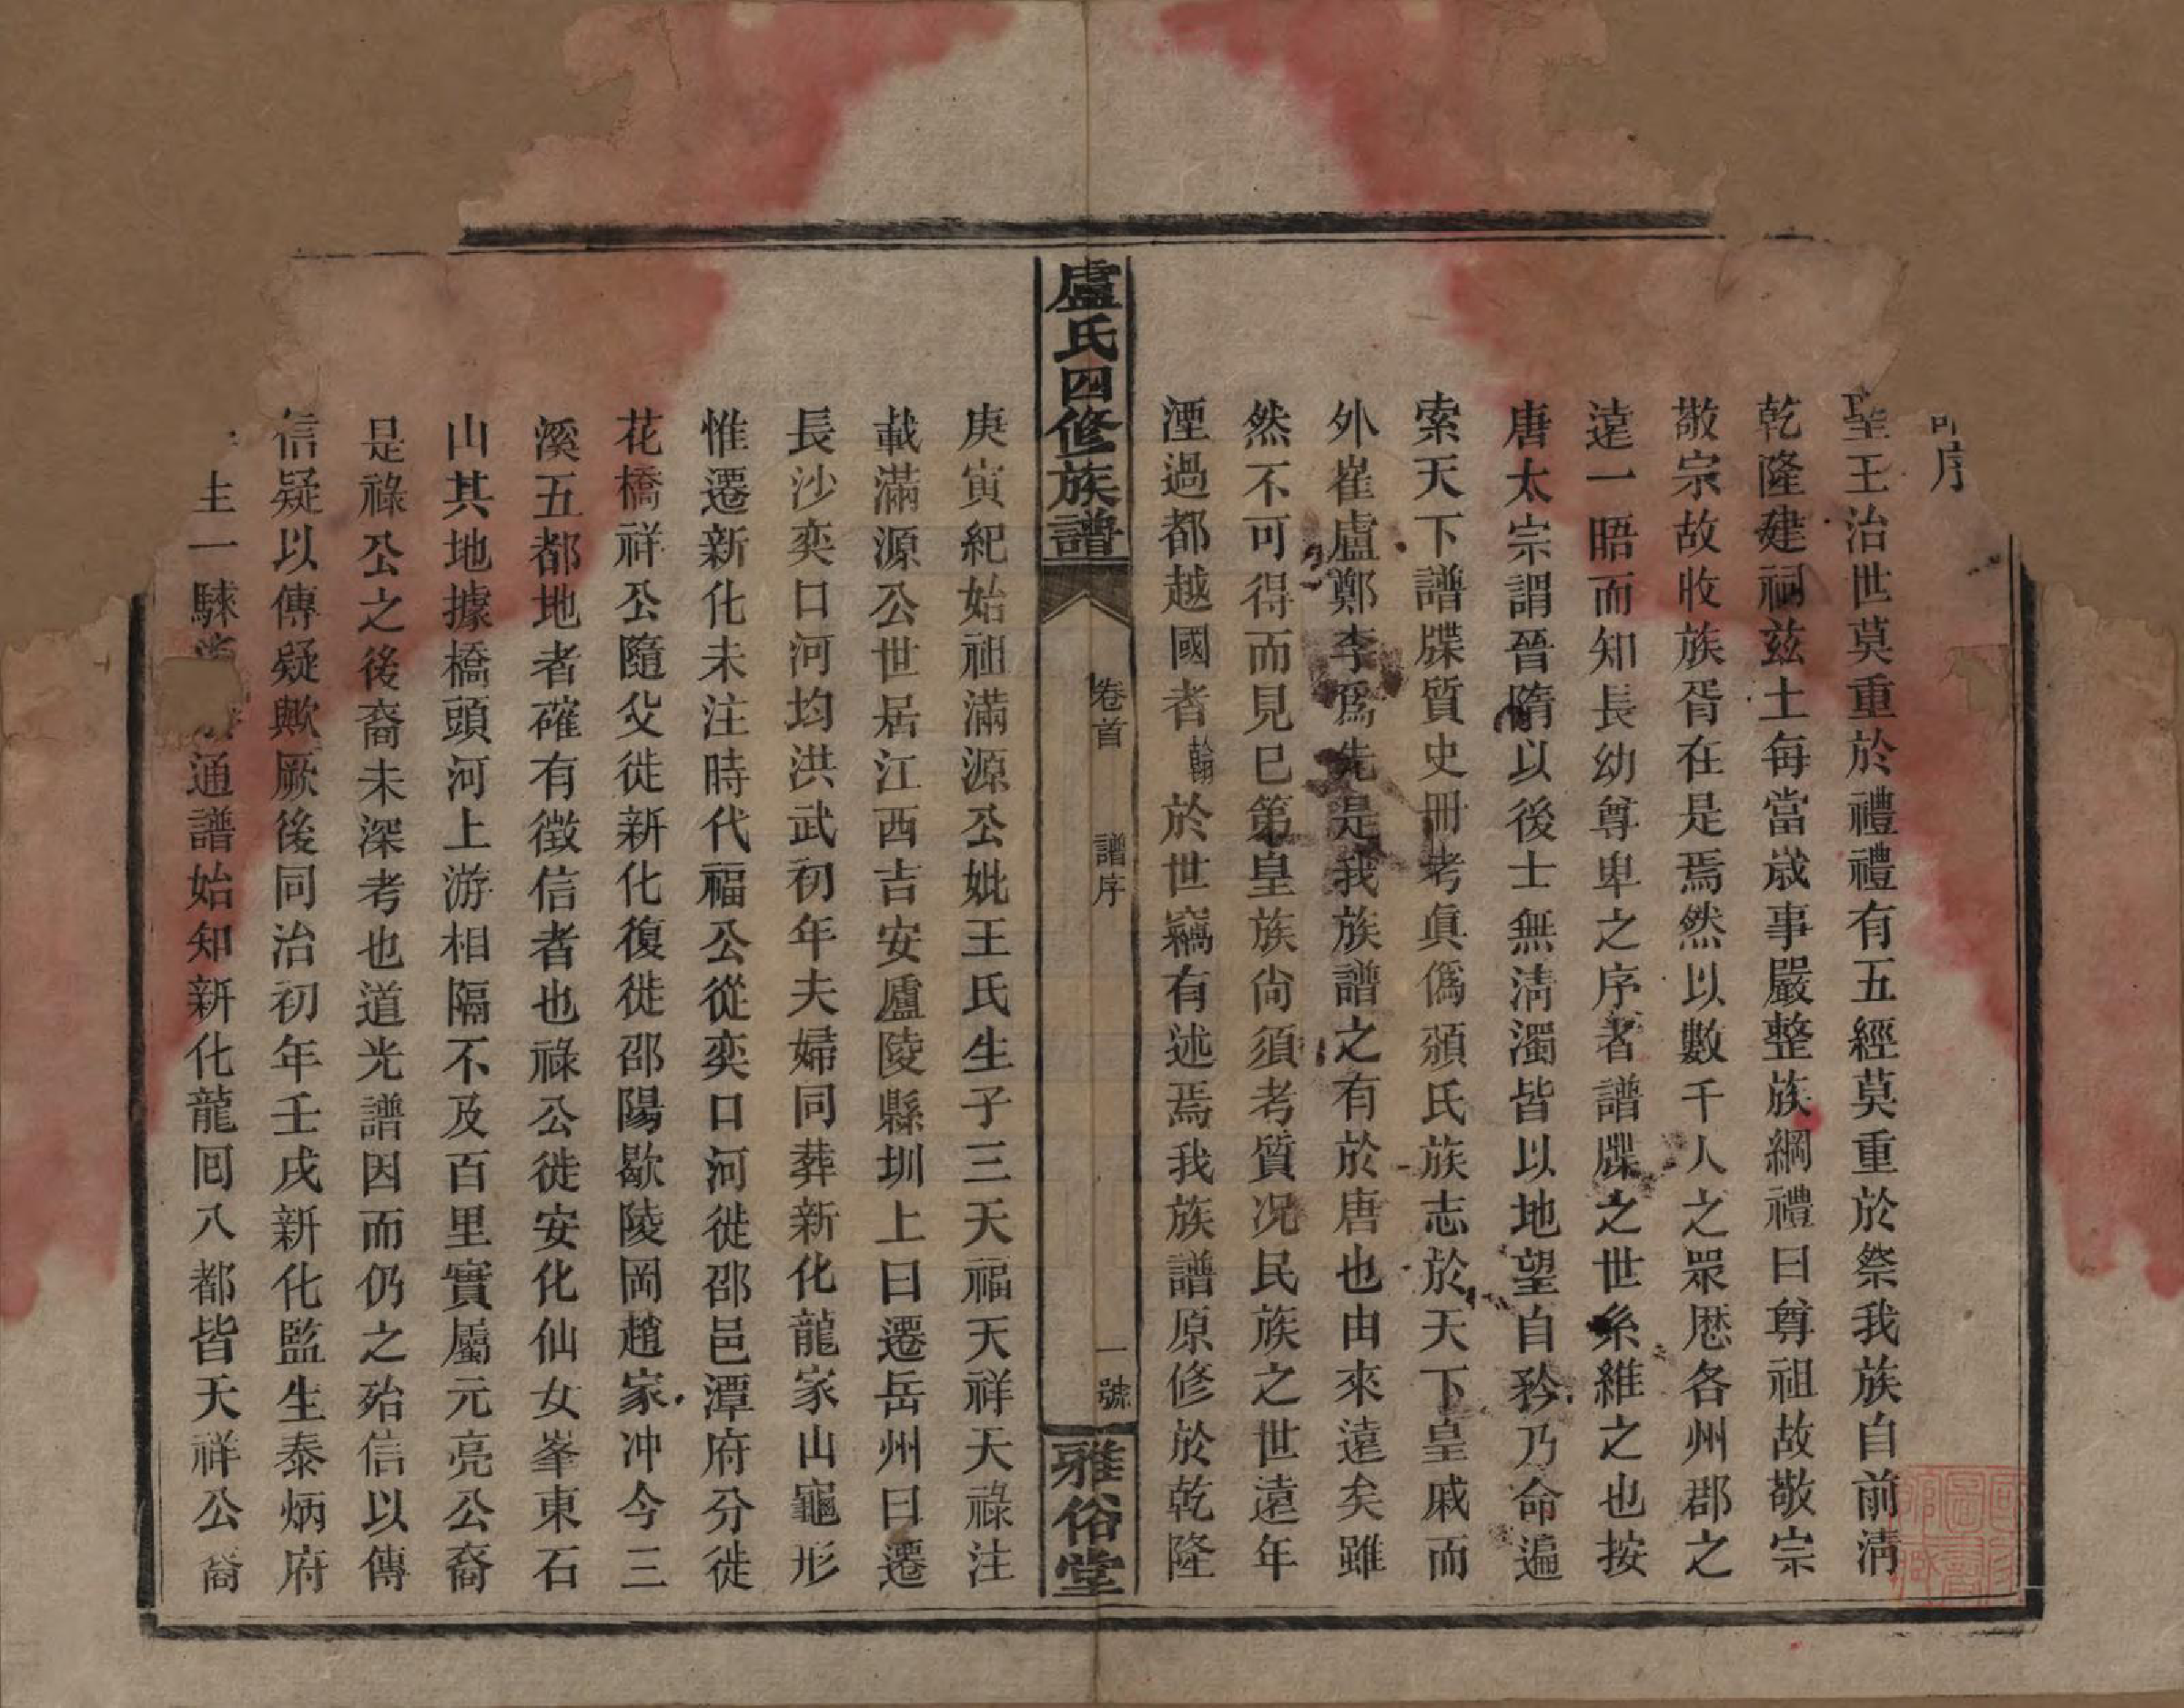 序
聖王治世莫重於禮禮有五經莫重於祭我族自前清
乾隆建祠兹土每當歲事嚴整族綱禮曰尊祖故敬宗
敬宗故收族胥在是焉然以數千人之眾歷各州郡之
遠一晤而知長幼尊卑之序者譜牒之世系維之也按
唐太宗謂晉隋以後士無清濁皆以地望自矜乃命遍
索天下譜牒質史冊考眞僞頒氏族志於天下皇戚而
外崔盧鄭李爲先是我族譜之有於唐也由來遠矣雖
然不可得而見已第皇族尙須考質况民族之世遠年
湮過都越國者翰於世竊有述焉我族譜原修於乾隆
盧氏四修族譜
卷首
譜序
一號
雅俗堂
庚寅紀始祖滿源公妣王氏生子三天福天祥天祿注
載滿源公世居江西吉安廬陵縣圳上曰遷岳州曰遷
長沙奕口河均洪武初年夫婦同葬新化龍家山龜形
惟遷新化未注時代福公從奕口河徙邵邑潭府分徙
花橋祥公隨父徙新化復徙邵陽歇陵岡趙家冲今三
溪五都地者確有徵信者也祿公徙安化仙女峯東石
山其地據橋頭河上游相隔不及百里實屬元亮公裔
是祿公之後裔未深考也道光譜因而仍之殆信以傳
信疑以傳疑歟厥後同治初年壬戌新化監生泰炳府
一騋通譜始知新化龍囘八都皆天祥公裔